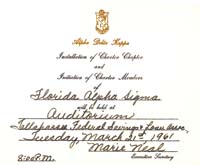 Alpha Delta Kappa
Installation of Charter Chapter
and
Initiation of Charter Members
of
Florida Alpha Sigma
will be held at
Auditorium
Tallahassee Federal Savings & Loan Assoc.
Tuesday, March 21st, 1961
Marie Neal
8:00 P.M.
Executive Secretary